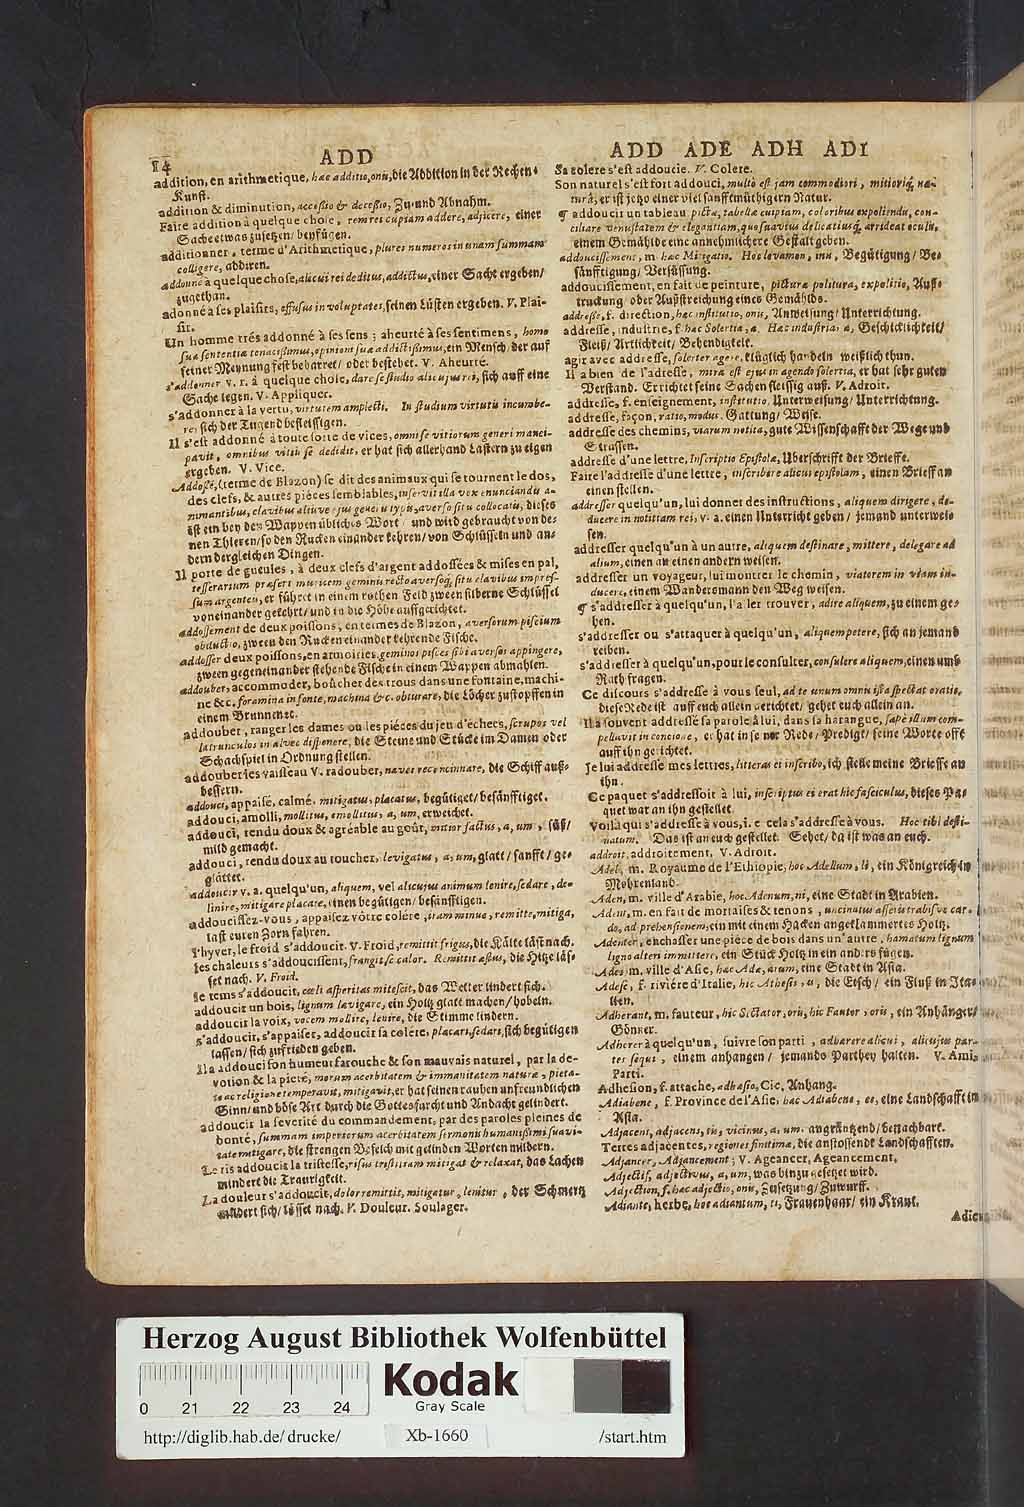 14 ADD
addition, en arithmetique, hæc additio, onis, die Addition in der Rechen-
Kunst.
addition & diminution, accessio & decessio, Zu-und Abnahm.
Faire addition à quelque chose, rem rei cuipiam addere, adjicere, einer
Sache etwas zusetzen/ beyfügen.
additionner, terme d'Arithmetique, plures numeros in unam summam
colligere, addiren.
addonné à quelque chose, alicui rei deditus, addictus, einer Sacht ergeben/
zugethan.
adonné à ses plaisirs, effusus in voluptates, seinen Lüsten ergeben. V. Plai-
sir.
Un homme trés addonné à ses sens; aheurté à ses sentimens, homo
suæ sententiæ tenacissimus, opinioni suæ addictissimus, ein Mensch, der auf
seiner Meynung fest beharret/ oder bestehet. V. Aheurté.
s'addonner v. r. à quelque chose, dare se studio alicujus rei, sich auff eine
Sache legen. V. Appliquer.
s'addonner à la vertu, virtutem amplecti. In studium virtutis incumbe-
re, sich der Tugend befleissigen.
Il s'est addonné à toute sorte de vices, omni se vitiorum generi manci-
pavit, omnibus vitiis se dedidit, er hat sich allerhand Lastern zu eigen
ergeben. V. Vice.
Addossé, (terme de Blazon) se dit des animaux qui se tournent le dos,
des clefs, & autres piéces semblables, inservit illa vox enunciandis a-
nimantibus, clavibus aliisve ejus generis typis, averso situ collocatis, dieses
ist ein bey den Wappen übliches Wort/ und wird gebraucht von de-
nen Thieren/ so den Rucken einander kehren/ von Schlüsseln und an-
dern dergleichen Dingen.
Il porte de gueules, à deux clefs d'argent addossées & mises en pal,
tesserarium præfert muricem geminis recto aversoq; situ clavibus impres-
sum argenteis, er führet in einem rothen Feld zween silberne Schlüssel
voneinander gekehrt/ und in die Höhe auffgerichtet.
addossement de deux poissons, en termes de Blazon, aversorum piscium
obductio, zween den Rucken einander kehrende Fische.
addosser deux poissons, en armoiries, geminos pisces sibi aversos appingere,
zween gegeneinander stehende Fische in einem Wappen abmahlen.
addouber, accommoder, boûcher des trous dans une fontaine, machi-
ne &c. foramina in fonte, machina &c. obturare, die Löcher zustopffen in
einem Brunnen &c.
addouber, ranger les dames ou les piéces du jeu d'échecs, scrupos vel
latrunculos in alveo disponere, die Steine und Stücke im Damen oder
Schachspiel in Ordnung stellen.
addouber les vaisseau V. radouber, naves reconcinnare, die Schiff auß-
bessern.
addouci, appaisé, calmé. mitigatus, placatus, begütiget/ besänfftiget.
addouci, amolli, mollitus, emollitus, a, um, erweichet.
addouci, rendu doux & agréable au goût, mitior factus, a, um, süß/
mild gemacht.
addouci, rendu doux au toucher, levigatus, a, um, glatt/ sanfft/ ge-
glättet.
addoucir v. a. quelqu'un, aliquem, vel alicujus animum lenire, sedare, de-
linire, mitigare placare, einen begütigen/ besänfftigen.
addoucissez-vous, appaisez vôtre colére, iram minue, remitte, mitiga,
laß euren Zorn fahren.
l'hyver, le froid s'addoucit. V. Froid, remittit frigus, die Kälte läst nach.
les chaleurs s'addoucissent, frangit se calor. Remittit æstus, die Hitze läs-
set nach. V. Froid.
le tems s'addoucit, cœli asperitas mitescit, das Wetter lindert sich.
addoucir un bois, lignum lævigare, ein Holtz glatt machen/ hobeln.
addoucir la voix, vocem mollire, lenire, die Stimme lindern.
s'addoucir, s'appaiser, addoucir sa colére, placari, sedari, sich begütigen
lassen/ sich zufrieden geben.
Il a addouci son humeur farouche & son mauvais naturel, par la de-
votion & la pieté, morum acerbitatem & immanitatem naturæ, pieta-
te ac religione temperavit, mitigavit, er hat seinen rauhen unfreundlichen
Sinn/ und böse Art durch die Gottesfurcht und Andacht gelindert.
addoucir la severité du commandement, par des paroles pleines de
bonté, summam imperiorum acerbitatem sermonis humanissimi suavi-
tate mitigare, die strengen Befehl mit gelinden Worten mildern.
Le ris addoucit la tristesse, risus tristitiam mitigat & relaxat, das Lachen
mindert die Traurigkeit.
La douleur s'addoucit, dolor remittit, mitigatur, lenitur, der Schmertz
mildert sich/ lässet nach. V. Douleur. Soulager.
ADD ADE ADH ADI
Sa colere s'est addoucie. V. Colere.
Son naturel s'est fort addouci, multò est jam commodiori, mitioriq; na-
turâ, er ist jetzo einer viel sanfftmüthigern Natur.
¶ addoucir un tableau pictæ, tabellæ cuipiam, coloribus expoliendis, con-
ciliare venustatem & elegantiam, quo suavius delicatiusq; arrideat oculis,
einem Gemählde eine annehmlichere Gestalt geben.
addoucissement, m. hæc Mitigatio. Hoc levamen, inis, Begütigung/ Be-
sänfftigung/ Versüssung.
addoucissement, en fait de peinture, picturæ politura, expolitio, Auß-
truckung oder Außstreichung eines Gemählds.
addresse, f. direction, hæc institutio, onis, Anweisung/ Unterrichtung.
addresse, industrie, f. hæc Solertia, æ. Hæc industria, æ, Geschicklichkeit/
Fleiß/ Artlichkeit/ Behendigkeit.
agir avec addresse, solerter agere, klüglich handeln weißlich thun.
Il a bien de l'adresse, mira est ejus in agendo solertia, er hat sehr guten
Verstand. Er richtet seine Sachen fleissig auß. V. Adroit.
addresse, f. enseignement, institutio, Unterweisung/ Unterrichtung.
addresse, façon, ratio, modus. Gattung/ Weise.
addresse des chemins, viarum notitia, gute Wissenschafft der Wege und
Strassen.
addresse d'une lettre, Inscriptio Epistolæ, Uberschrifft der Brieffe.
Faire l'addresse d'une lettre, inscribere alicui epistolam, einen Brieff an
einen stellen.
addresser quelqu'un, lui donner des instructions, aliquem dirigere, de-
ducere in notitiam rei, v. a. einen Unterricht geben/ jemand unterwei-
sen.
addresser quelqu'un à un autre, aliquem destinare, mittere, delegare ad
alium, einen an einen andern weisen.
addresser un voyageur, lui montrer le chemin, viatorem in viam in-
ducere, einem Wandersmann den Weg weisen.
¶ s'addresser à quelqu'un, l'aller trouver, adire aliquem, zu einem ge-
hen.
s'addresser ou s'attaquer à quelqu'un, aliquem petere, sich an jemand
reiben.
s'addresser à quelqu'un, pour le consulter, consulere aliquem, einen umb
Rath fragen.
Ce discours s'addresse à vous seul, ad te unum omnis ista spectat oratio,
diese Rede ist auff euch allein gerichtet/ gehet euch allein an.
Il a souvent addressé sa parole à lui, dans sa harangue, sæpè illum com-
pellavit in concione, er hat in seiner Rede/ Predigt/ seine Worte offt
auff ihn gerichtet.
Je lui addresse mes lettres, litteras ei inscribo, ich stelle meine Brieffe an
ihn.
Ce paquet s'addressoit à lui, inscriptus ei erat hic fasciculus, dieses Pa-
quet war an ihn gestellet.
Voilà qui s'addresse à vous, i. e. cela s'addresse à vous. Hoc tibi desti-
natum. Das ist an euch gestellet. Sehet/ da ist was an euch.
addroit, addroitement, V. Adroit.
Adel, m. Royaume de l'Ethiopie, hoc Adellum, li, ein Königreich in
Mohrenland.
Aden, m. ville d'Arabie, hoc Adenum, ni, eine Stadt in Arabien.
Adent, m. en fait de mortaises & tenons, uncinatus asseris trabisve car-
do, ad prehensionem, ein mit einem Hacken angeklammertes Holtz.
Adenter, enchasser une piéce de bois dans un'autre, hamatum lignum
ligno alteri immittere, ein Stück Holtz in ein anders fügen.
Ades, m. ville d'Asie, hæc Adæ, arum, eine Stadt in Asia.
Adese, f. riviére d'Italie, hic Athesis, is, die Etsch/ ein Fluß in Ita-
lien.
Adherant, m. fauteur, hic Sectator, oris, hic Fautor, oris, ein Anhänger/
Gönner.
Adherer à quelqu'un, suivre son parti, adhærere alicui, alicujus par-
tes sequi, einem anhangen/ jemands Parthey halten. V. Ami,
Parti.
Adhesion, f. attache, adhæsio, Cic, Anhang.
Adiabene, f. Province de l'Asie, hæc Adiabene, es, eine Landschafft in
Asia.
Adjacent, adjacens, tis, vicinus, a, um, angräntzend/ benachbart.
Terres adjacentes, regiones finitimæ, die anstossende Landschafften.
Adjancer, Adjancement; V. Ageancer, Ageancement.
Adjectif, adjectivus, a, um, was hinzugesetzet wird.
Adjection, f. hæc adjectio, onis, Zusetzung/ Zuwurff.
Adiante, herbe, hoc adiantum, ti, Frauenhaar/ ein Kraut.
Herzog August Bibliothek Wolfenbüttel
Kodak
Gray Scale
0 21 22 23 24
http://diglib.hab.de/drucke/ Xb-1660 /start.htm